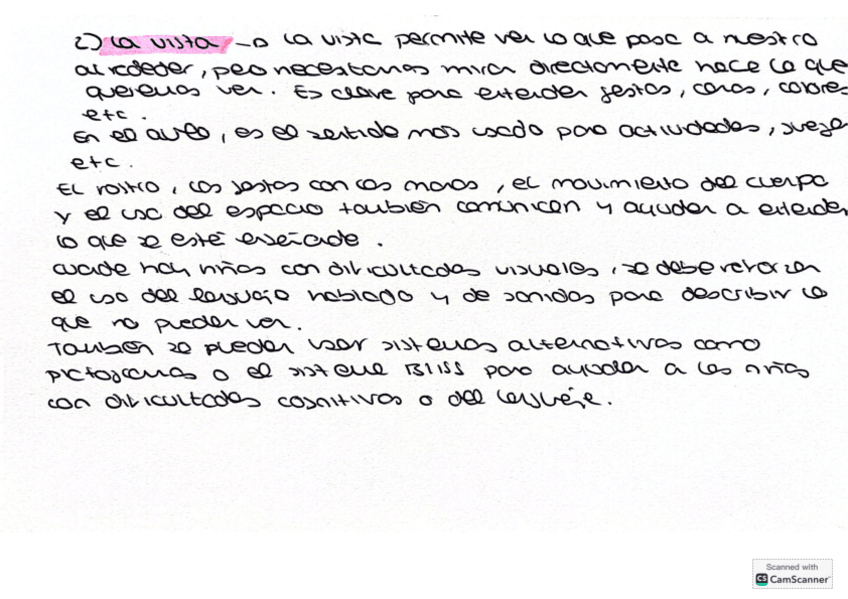 2) La vista → La vista permite ver lo que pasa a nuestro
alrededor, pero necesitamos mirar directamente hace lo que
queremos ver. Es clave para entender gestos, caras, colores
etc.
En el aula, es el sentido más usado para actividades, juegos
etc.
El rostro, los gestos con las manos, el movimiento del cuerpo
y el uso del espacio también comunican y ayudan a entender
lo que se esté enseñando.
cuando hay niños con dificultades visuales, se debe reforzar
el uso del lenguaje hablado y de sonidos para describir lo
que no pueden ver.
También se pueden usar sistemas alternativos como
pictogramas o el sistema BLISS para ayudar a los niños
con dificultades cognitivas o del lenguaje.
Scanned with
CS CamScanner